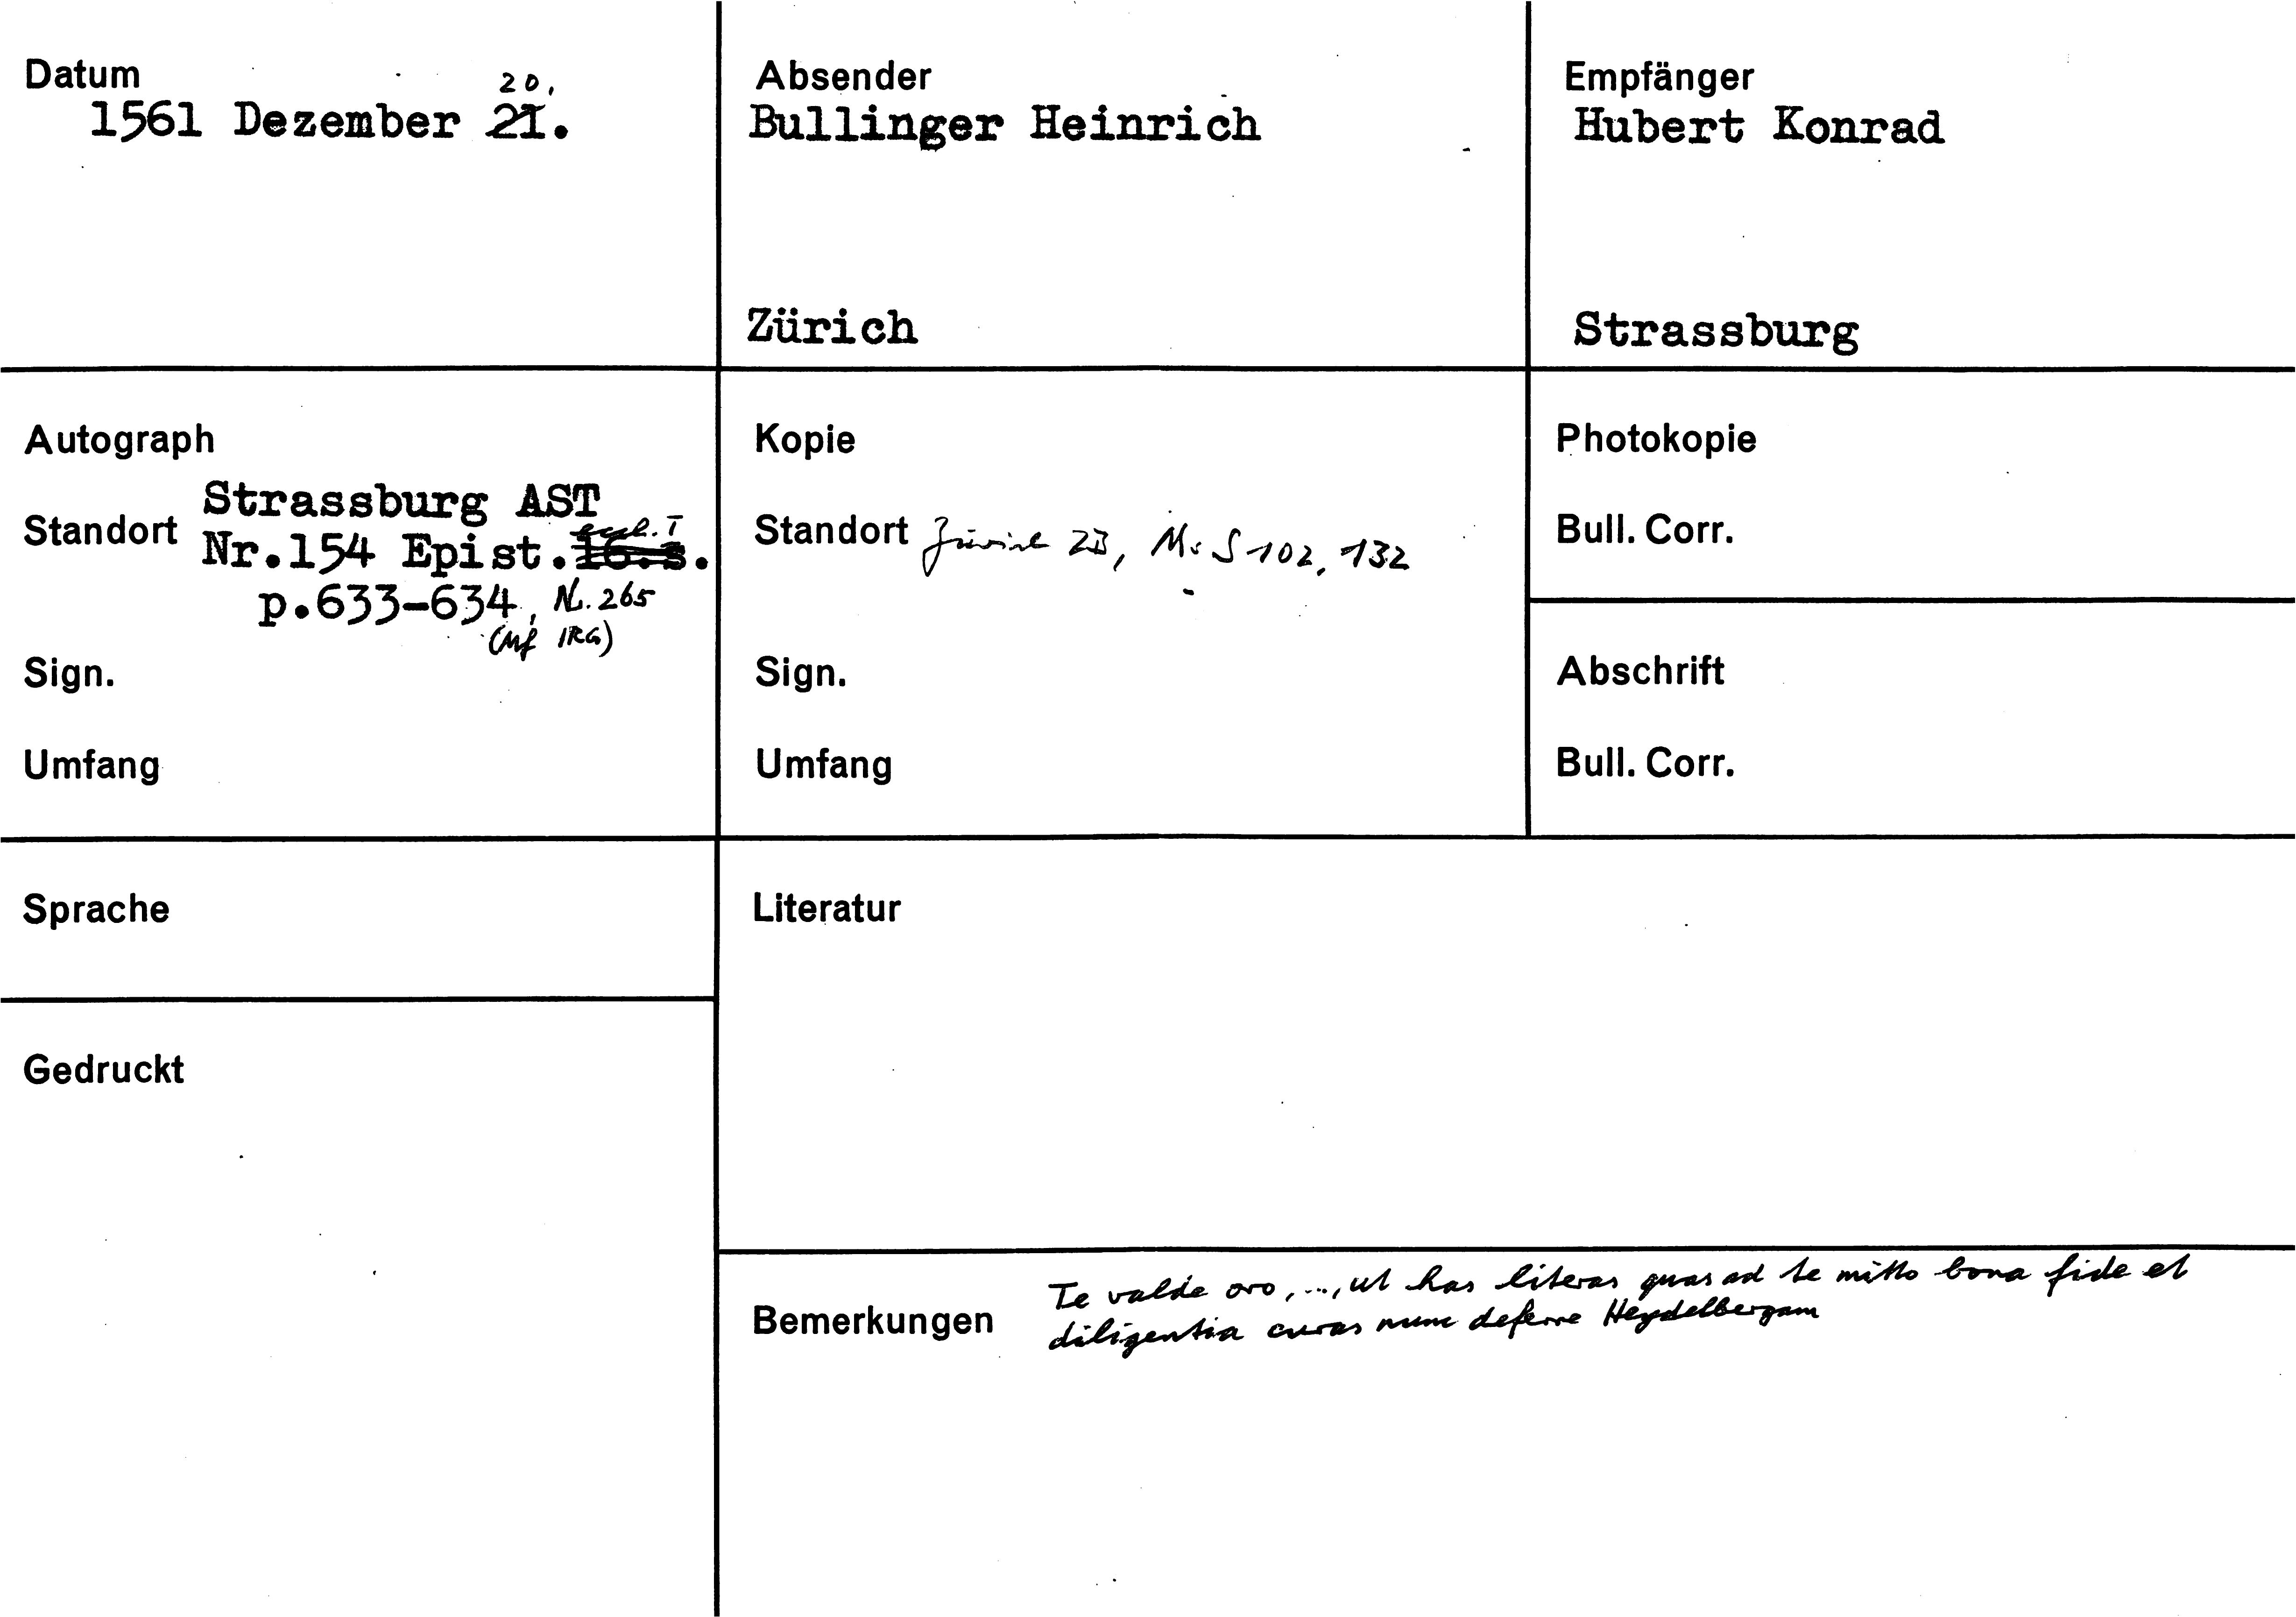 Datum
20.
1561 Dezember 21.
Absender
Bullinger Heinrich
Zürich
Empfänger
Hubert Konrad
Strassburg
Autograph
Standort Strassburg AST
eccl. I
Nr.154 Epist.16.s.
p.633-634, Nr. 265
(Mf IRG)
Sign.
Umfang
Kopie
Standort Zürich ZB, Ms S 102, 132
Sign.
Umfang
Photokopie
Bull. Corr.
Abschrift
Bull. Corr.
Sprache
Literatur
Gedruckt
Bemerkungen
Te valde oro, ..., ut has literas quas ad te mitto bona fide et
diligentia curas nunc deferre Heydelbergam